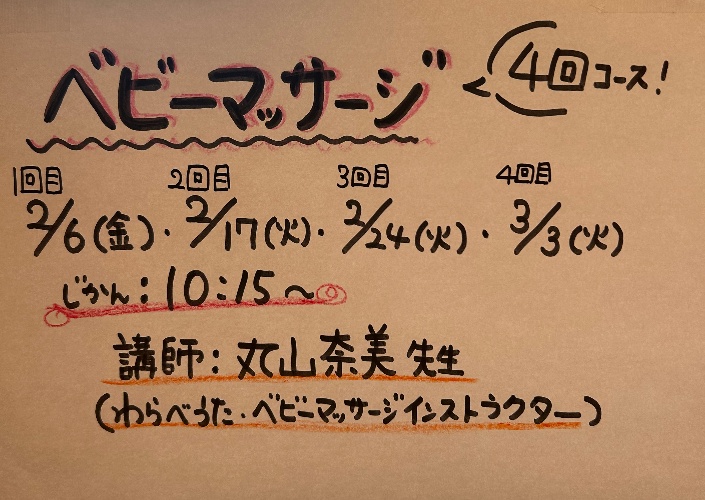 ベビーマッサージ 4回コース!
1回目 2回目 3回目 4回目
2/6(金)・2/17(火)・2/24(火)・3/3(火)
じかん:10:15〜
講師:丸山奈美先生
(わらべうた・ベビーマッサージインストラクター)